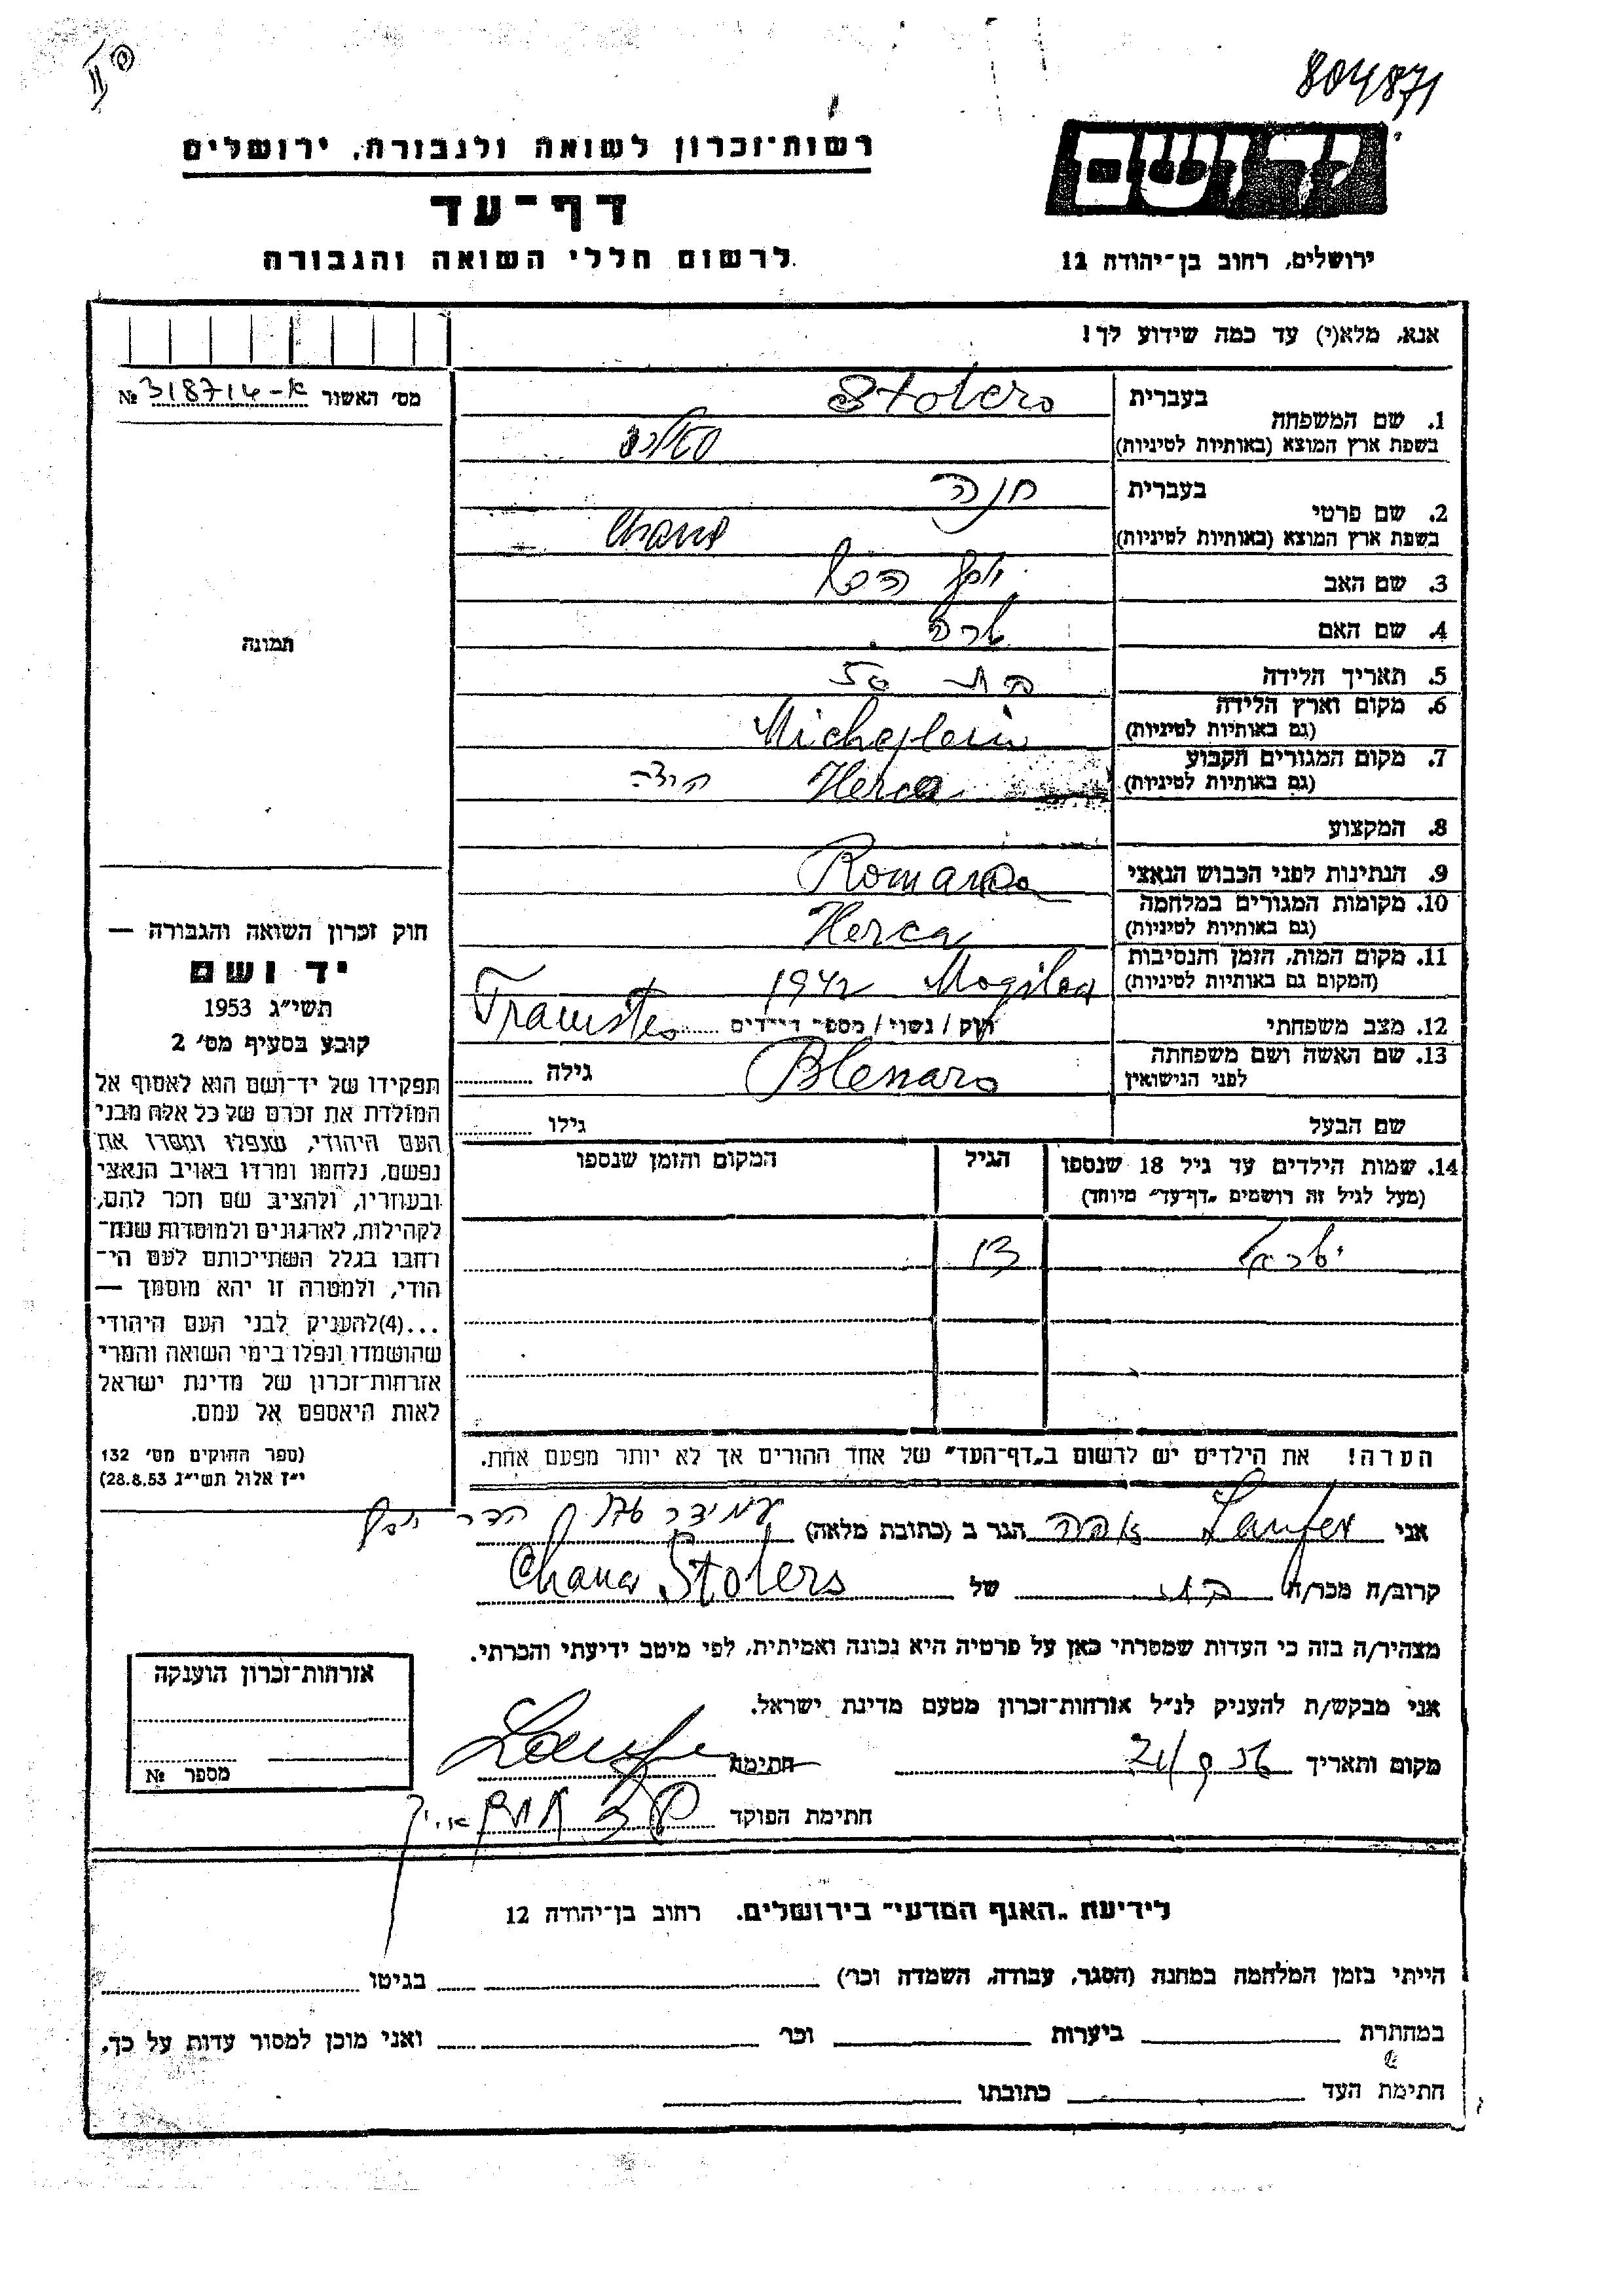 804871
יד ושם
רשות־זכרון לשואה ולגבורה, ירושלים
דף־עד
לרשום חללי השואה והגבורה
ירושלים, רחוב בן־יהודה 12
אנא, מלא(י) עד כמה שידוע לך!
מס׳ האשור א-318714 №
תמונה
1. שם המשפחה
בעברית Stolero
בשפת ארץ המוצא (באותיות לטיניות)
2. שם פרטי
בעברית חנה
בשפת ארץ המוצא (באותיות לטיניות) Chana
3. שם האב
4. שם האם שרה
5. תאריך הלידה
6. מקום וארץ הלידה
(גם באותיות לטיניות)
7. מקום המגורים הקבוע Herca
(גם באותיות לטיניות)
8. המקצוע
9. הנתינות לפני הכבוש הנאצי
10. מקומות המגורים במלחמה Herca
(גם באותיות לטיניות)
11. מקום המות, הזמן והנסיבות Mogilev 1942
(המקום גם באותיות לטיניות)
12. מצב משפחתי רוק / נשוי / מספר הילדים
13. שם האשה ושם משפחתה
לפני הנישואין Blenaro גילה
שם הבעל גילו
14. שמות הילדים עד גיל 18 שנספו הגיל המקום והזמן שנספו
(מעל לגיל זה רושמים „דף־עד״ מיוחד)
ישראל
הערה! את הילדים יש לרשום ב„דף־העד״ של אחד ההורים אך לא יותר מפעם אחת.
חוק זכרון השואה והגבורה —
יד ושם
תשי״ג 1953
קובע בסעיף מס׳ 2
תפקידו של יד־ושם הוא לאסוף אל
המולדת את זכרם של כל אלה מבני
העם היהודי, שנפלו ומסרו את
נפשם, נלחמו ומרדו באויב הנאצי
ובעוזריו, ולהציב שם וזכר להם,
לקהילות, לארגונים ולמוסדות שנח־
רחבו בגלל השתייכותם לעם הי־
הודי, ולמטרה זו יהא מוסמך —
...(4) להעניק לבני העם היהודי
שהושמדו ונפלו בימי השואה והמרי
אזרחות־זכרון של מדינת ישראל
לאות היאספם אל עמם.
(ספר החוקים מס׳ 132
י״ז אלול תשי״ג 28.8.53)
אני Laufer הגר ב (כתובת מלאה)
קרוב/ה מכר/ה בת של Chana Stolers
מצהיר/ה בזה כי העדות שמסרתי כאן על פרטיה היא נכונה ואמיתית, לפי מיטב ידיעתי והכרתי.
אני מבקש/ת להעניק לנ״ל אזרחות־זכרון מטעם מדינת ישראל.
מקום ותאריך חתימה Laufer
חתימת הפוקד
אזרחות־זכרון הוענקה
מספר №
לידיעת „האגף המדעי״ בירושלים. רחוב בן־יהודה 12
הייתי בזמן המלחמה במחנה (הסגר, עבודה, השמדה וכו׳) בגיטו
במחתרת ביערות וכו׳ ואני מוכן למסור עדות על כך.
חתימת העד כתובתו